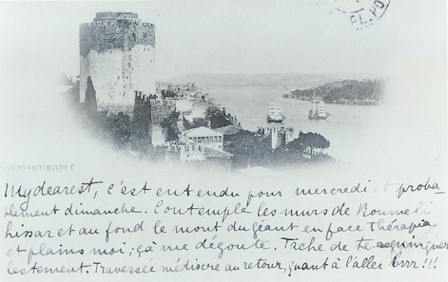 CONSTANTINOPLE
My dearest, c'est entendu pour mercredi et proba-
blement dimanche. Contemple les murs de Roumeli
hissar et au fond le mont du géant en face Thérapia
et plains moi; ça me dégoute. Tache de te
lestement. Traversée médiocre au retour, quant à l'aller brrr!!!